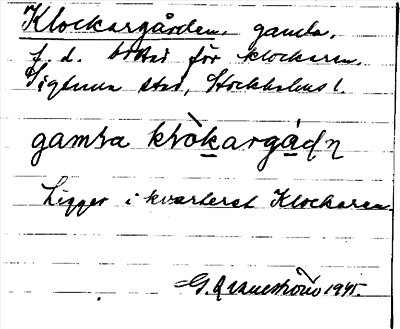 Klockargården, gamla,
f. d. bostad för klockaren.
Sigtuna stad, Stockholms l.
gamla klòkargáḍn
Ligger i kvarteret Klockaren.
G. 1945.